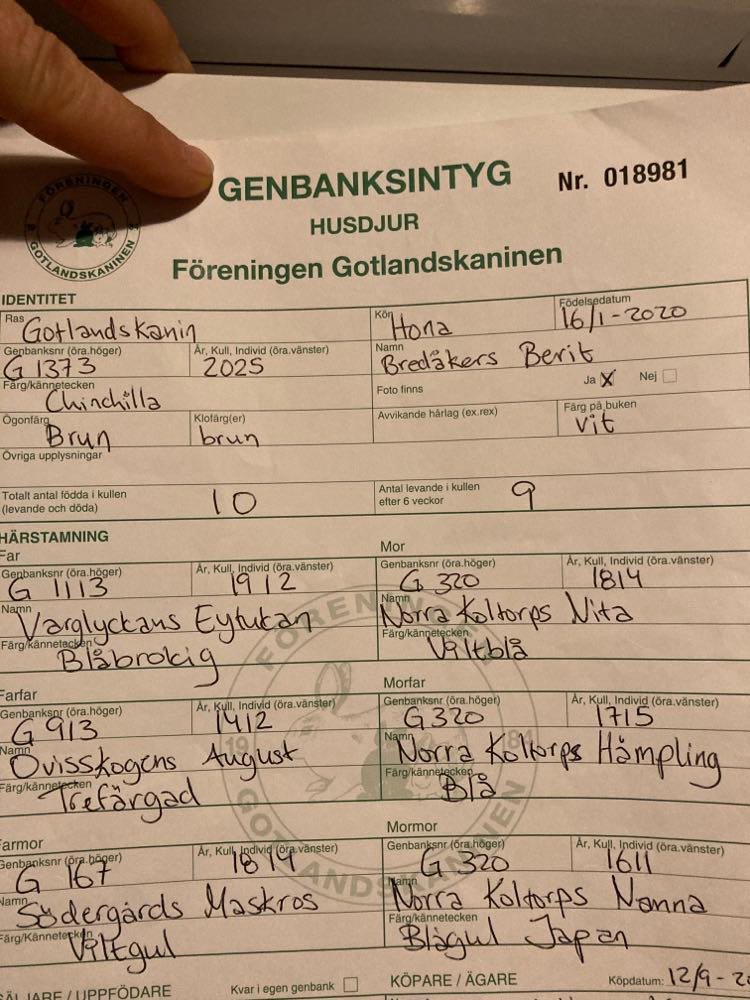 FÖRENINGEN
GOTLANDSKANINEN
GENBANKSINTYG
Nr. 018981
HUSDJUR
Föreningen Gotlandskaninen
IDENTITET
Ras Gotlandskanin
Kön Hona
Födelsedatum 16/1-2020
Genbanksnr (öra.höger) G 1373
År, Kull, Individ (öra.vänster) 2025
Namn Bredåkers Berit
Färg/kännetecken Chinchilla
Foto finns Ja X Nej
Ögonfärg Brun
Klofärg(er) brun
Avvikande hårlag (ex.rex)
Färg på buken vit
Övriga upplysningar
Totalt antal födda i kullen
(levande och döda) 10
Antal levande i kullen
efter 6 veckor 9
HÄRSTAMNING
Far
Genbanksnr (öra.höger) G 1113
År, Kull, Individ (öra.vänster) 1912
Namn Varglyckans Eytukan
Färg/kännetecken Blåbrokig
Mor
Genbanksnr (öra.höger) G 320
År, Kull, Individ (öra.vänster) 1814
Namn Norra Koltorps Vita
Färg/kännetecken Viltblå
Farfar
Genbanksnr (öra.höger) G 913
År, Kull, Individ (öra.vänster) 1412
Namn Ovisskogens August
Färg/kännetecken Trefärgad
Morfar
Genbanksnr (öra.höger) G 320
År, Kull, Individ (öra.vänster) 1715
Namn Norra Koltorps Hämpling
Färg/kännetecken Blå
Farmor
Genbanksnr (öra.höger) G 167
År, Kull, Individ (öra.vänster)
Namn Södergårds Maskros
Färg/Kännetecken Viltgul
Mormor
Genbanksnr (öra.höger) G 320
År, Kull, Individ (öra.vänster) 1611
Namn Norra Koltorps Nanna
Färg/kännetecken Blågul Japan
SÄLJARE / UPPFÖDARE
Kvar i egen genbank
KÖPARE / ÄGARE
Köpdatum: 12/9-2